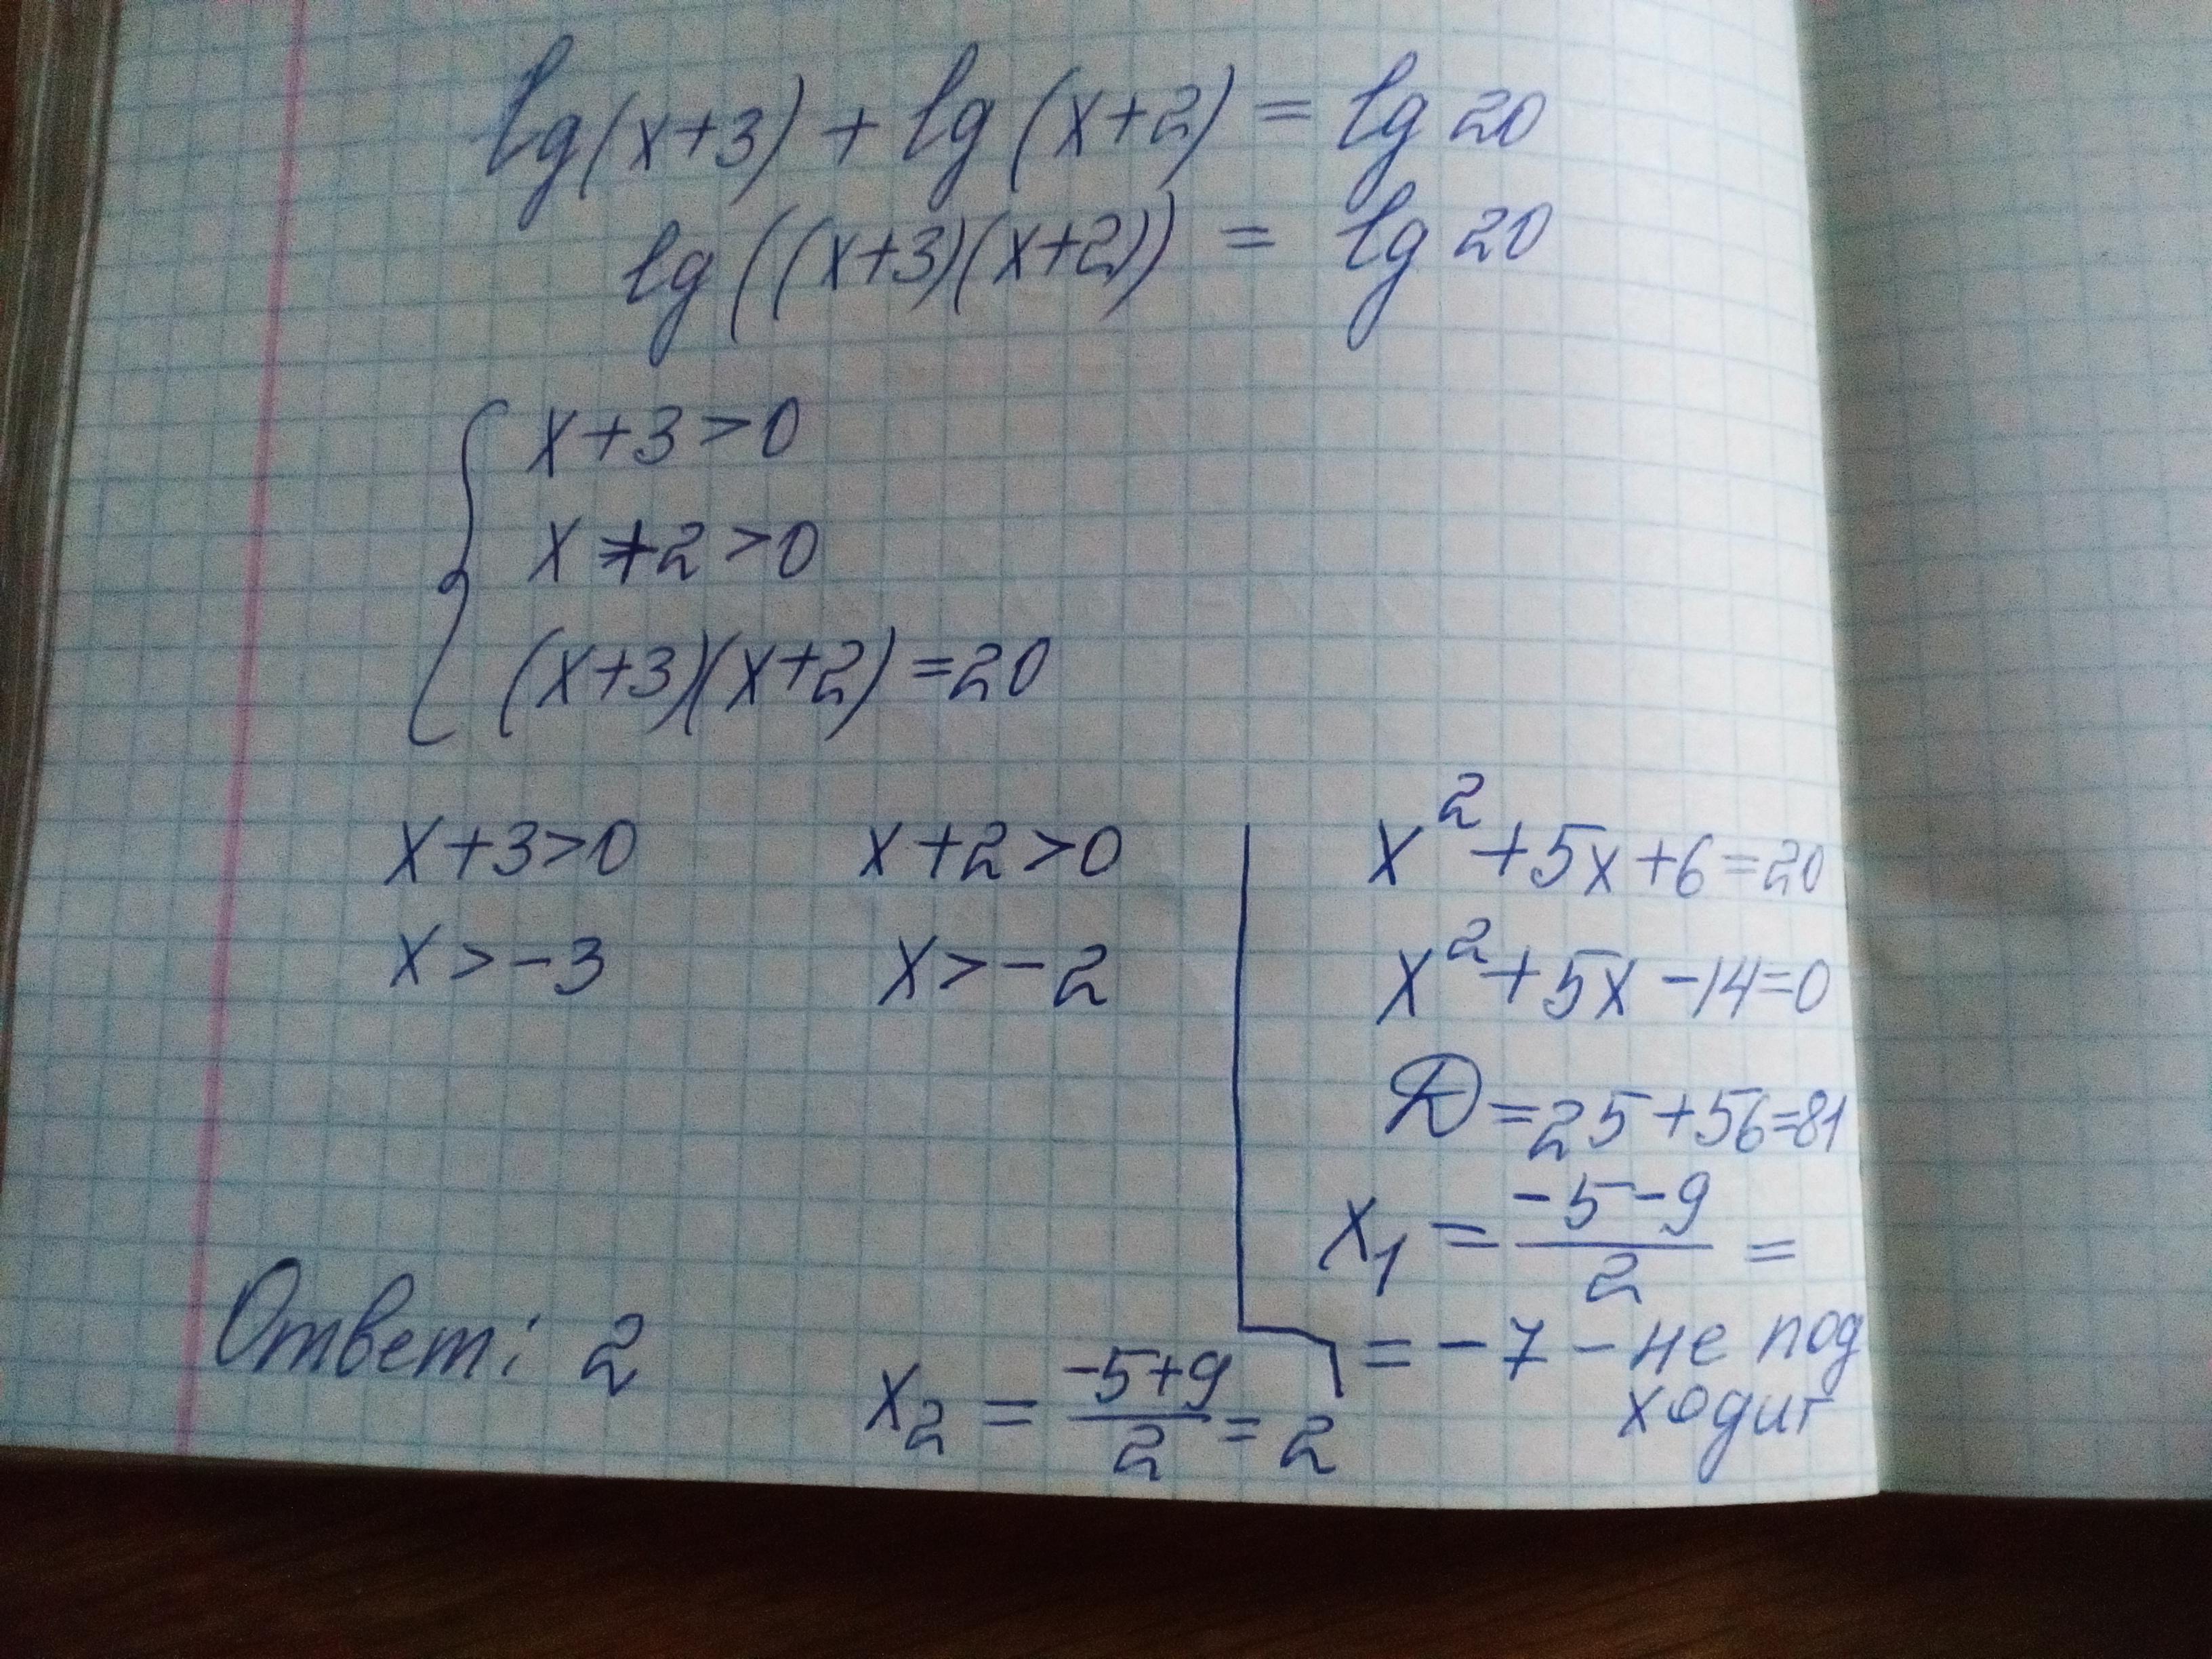 lg(x+3) + lg(x+2) = lg 20
lg((x+3)(x+2)) = lg 20
x+3>0
x+2>0
(x+3)(x+2)=20
x+3>0 x+2>0
x>-3 x>-2
x²+5x+6=20
x²+5x-14=0
D=25+56=81
x₁ = (-5-9)/2 =
= -7 - не под
ходит
x₂ = (-5+9)/2 = 2
Ответ: 2